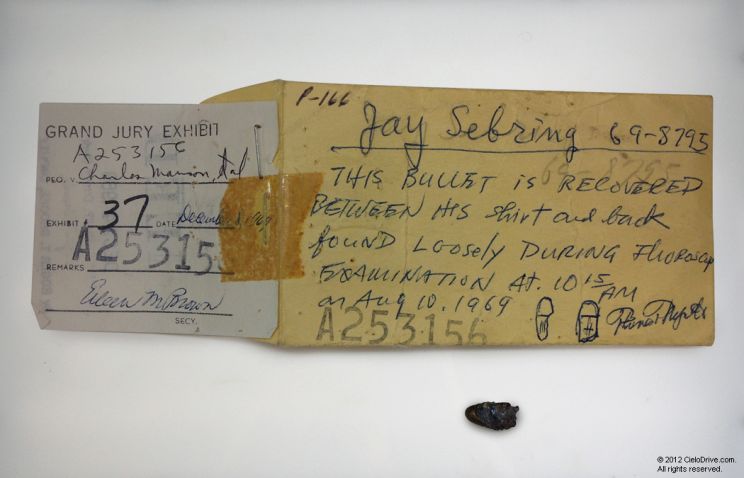 GRAND JURY EXHIBIT
A253156
PEO. V. Charles Manson, et al
EXHIBIT # 37 DATE December 8, 1969
A253156
REMARKS
Eileen M. Brown
SECY.
P-166
Jay Sebring 69-8795
69-8795
THIS BULLET IS RECOVERED
BETWEEN HIS shirt and back
FOUND LOOSELY DURING Fluoroscop
EXAMINATION AT 10 15 AM
on Aug 10, 1969
A253156
© 2012 CieloDrive.com.
All rights reserved.